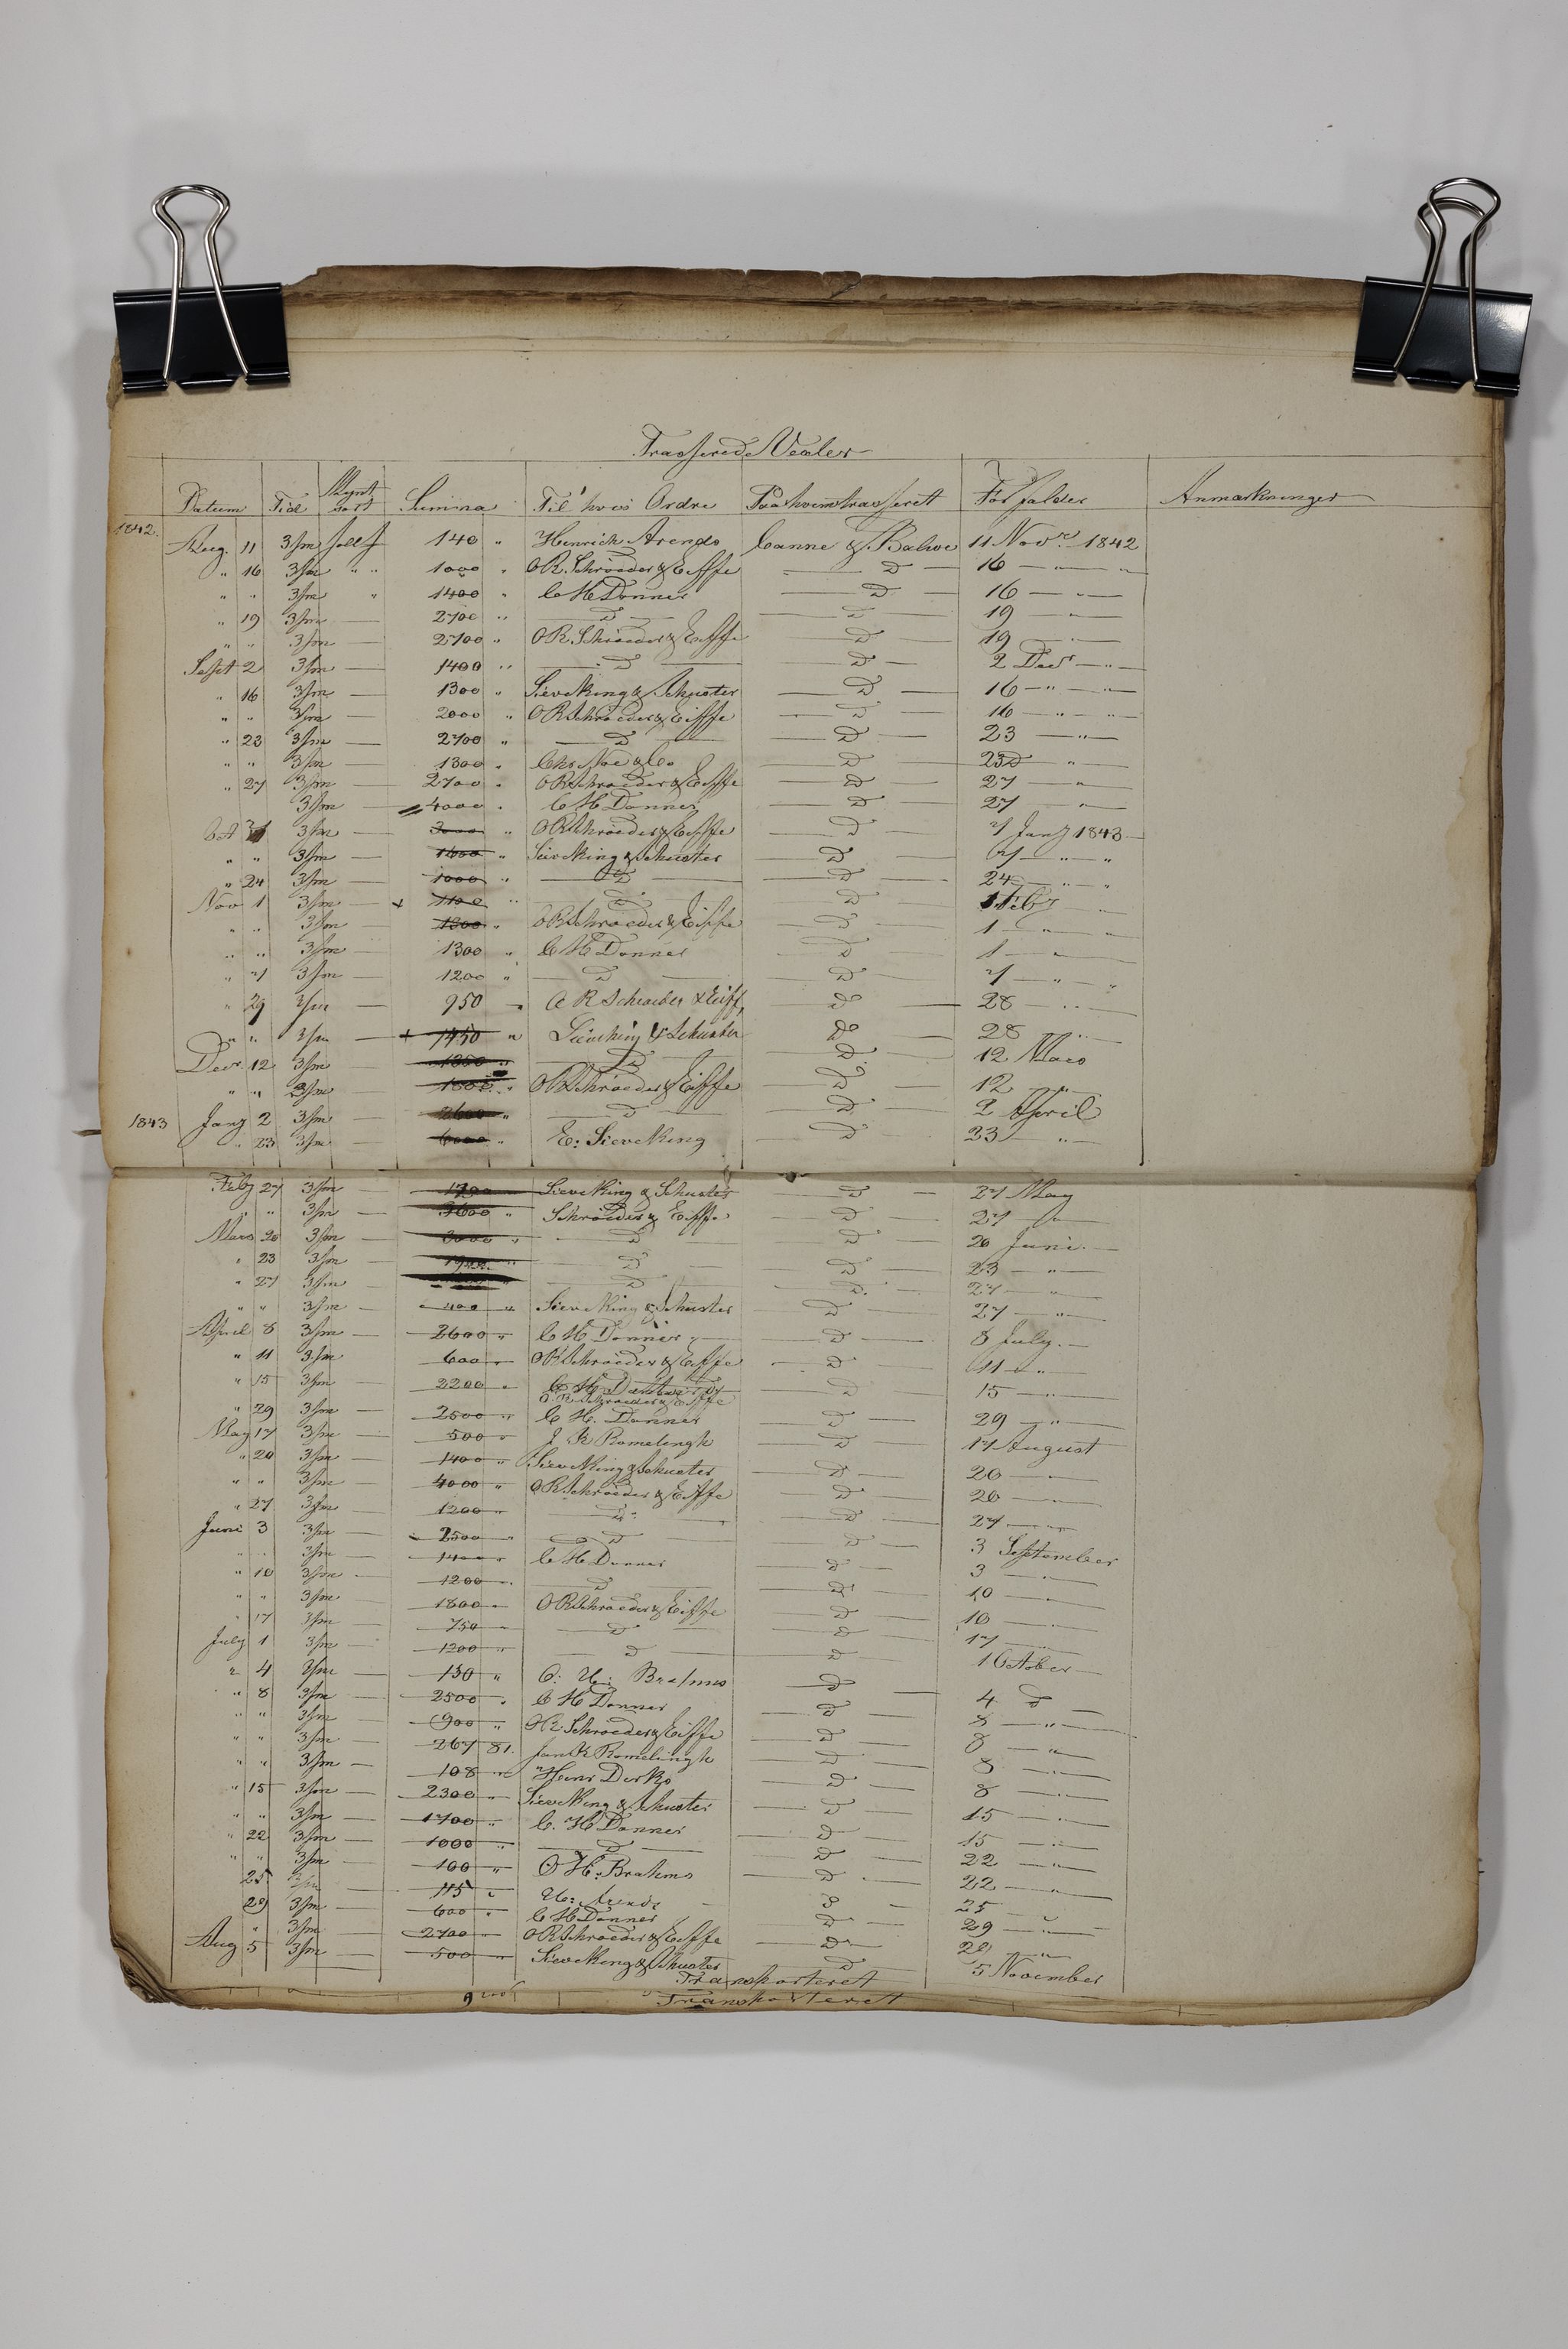 Trasserede Vexler
Datum Tid Mynt sort Summa Til hvis Ordre Paa hvem trasseret Forfalder Anmærkninger
1842.
Aug. 11 3/m 140 " Henrich Arends Canne & Balwe 11 Novr. 1842
" 16 3/m " " 1000 " O R. Schroeder & Eiffe — D — 16 — " — "
" " 3/m " 1400 " C H Donner — D — 16 — " —
" 19 3/m — 2700 " — D — — D — 19 — " —
" " 3/m — 2700 " O R Schroeder & Eiffe — D — 19 — " —
Sept 2 3/m — 1400 " — D — — D — 2 Decr — " —
" 16 3/m — 1300 " Sieveking & Schuster — D — 16 — " — " —
" " 3/m — 2000 " O R Schroeder & Eiffe — D — 16 — " — " —
" 23 3/m — 2700 " — D — — D — 23 — " —
" " 3/m — 1300 " Chs Noe & Co — D — 23 D — " —
" 27 3/m — 2700 " O R Schroeder & Eiffe — D — 27 — " —
3/m — 4000 " C H Donner — D — 27 — " —
Oct 3/m — 3000 " O R Schroeder & Eiffe — D — 7 Jany 1843 —
" " 3/m — 1600 " Sieveking & Schuster — D — — " — "
" 24 3/m — 1000 " — D — — D — 24 — " — "
Nov 1 3/m — + 1100 " — D — — D — 1 Feby "
" " 3/m — 1300 " O R Schroeder & Eiffe — D — 1 — " — "
" " 3/m — 1300 " C H Donner — D — 1 — " —
" 7 3/m — 1200 " — D — — D — 7 — " — "
" 29 3/m — 950 " O R Schroeder & Eiff, — D — 28 — " —
" " 3/m — + 1450 " Sieveking & Schuster — D — 28 "
Decr 12 3/m — " — D — — D — 12 Mars
" " 3/m — " O R Schroeder & Eiffe — D — 12 — " —
1843 Jany 2 3/m — 2600 " — D — — D — 2 April
" 23 3/m — 6000 " E: Sieveking — D — 23 — " —
Feby 27 3/m — Sieveking & Schuster — D — 27 May
" " 3/m — 3600 " Schroeder & Eiffe — D — 27 — " —
Mars 20 3/m — 3000 " — D — — D — 20 Juni. —
" 23 3/m — " — D — — D — 23 — " —
" 27 3/m — " — D — — D — 27 — " —
" " 3/m — 400 " Sieveking & Schuster — D — 27 — " —
April 8 3/m — 2600 " C H Donner — D — 8 July. —
" 11 3/m — 600 " O R Schroeder & Eiffe — D — 11 — " —
" 15 3/m — 2200 " C H
O. R. Schroeder & Eiffe — D — 15 — " —
" 29 3/m — 2500 " C H. Donner — D — 29 — " —
May 17 3/m — 500 " J K Romelingh — D — 17 August
" 20 3/m — 1400 " Sieveking & Schuster — D — 20 — " —
" " 3/m — 4000 " O R Schroeder & Eiffe — D — 20 — " —
" 27 3/m — 1200 " — D — — D — 27 — " —
Juni 3 3/m — 2500 " — D — — D — 3 September
" " 3/m — 1400 " C H Donner — D — 3 — " —
" 10 3/m — 1200 " — D — — D — 10 — " —
" " 3/m — 1800 " O R Schroeder & Eiffe — D — 10 — " —
" 17 3/m — 750 " — D — — D — 17 — " —
July 1 3/m — 1200 " — D — — D — 1 October —
" 4 3/m — 130 " O: H: Brahms — D — 4 D —
" 8 3/m — 2500 " C H Donner — D — 8 — " —
" " 3/m — 900 " O R Schroeder & Eiffe — D — 8 — " —
" " 3/m — 267 81. Jan K Romelingh — D — 8 — " —
" " 3/m — 108 " Heinr Derks — D — 8 — " —
" 15 3/m — 2300 " Sieveking & Schuster — D — 15 — " —
" " 3/m — 1700 " C. H Donner — D — 15 — " —
" 22 3/m — 1000 " — D — — D — 22 — " —
" " 3/m — 100 " O H: Brahms — D — 22 — " —
25 3/m — 115 " H: Arends — D — 25 — " —
29 3/m — 600 " C H Donner — D — 29 — " —
" 3/m — 2700 " O R Schroeder & Eiffe — D — 29 — " —
Aug 5 3/m — 500 " Sieveking & Schuster — D — 5 November
Transporteret
Transporteret